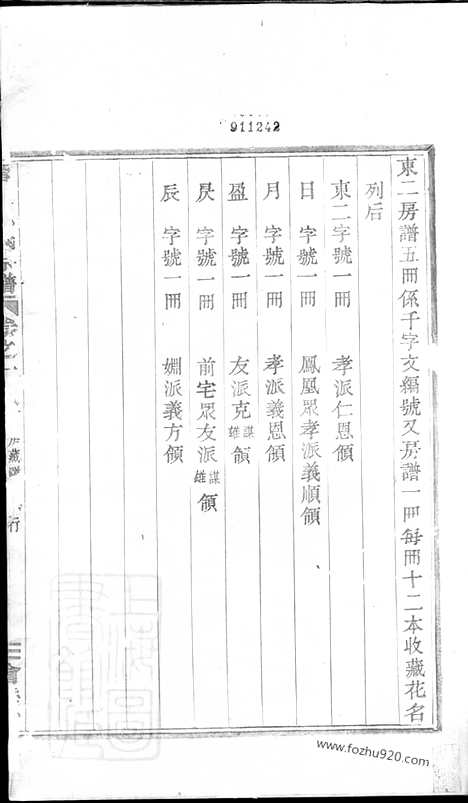 911242
東二房譜五冊係千字文編號又房譜一冊每冊十二本收藏花名
列后
東二字號一冊 孝派仁恩領
日 字號一冊 鳳凰眾孝派義順領
月 字號一冊 孝派義恩領
盈 字號一冊 友派克謀雄領
昃 字號一冊 前宅眾友派謀雄領
辰 字號一冊 婣派義方領
譜
上海圖書館藏
www.fozhu920.com